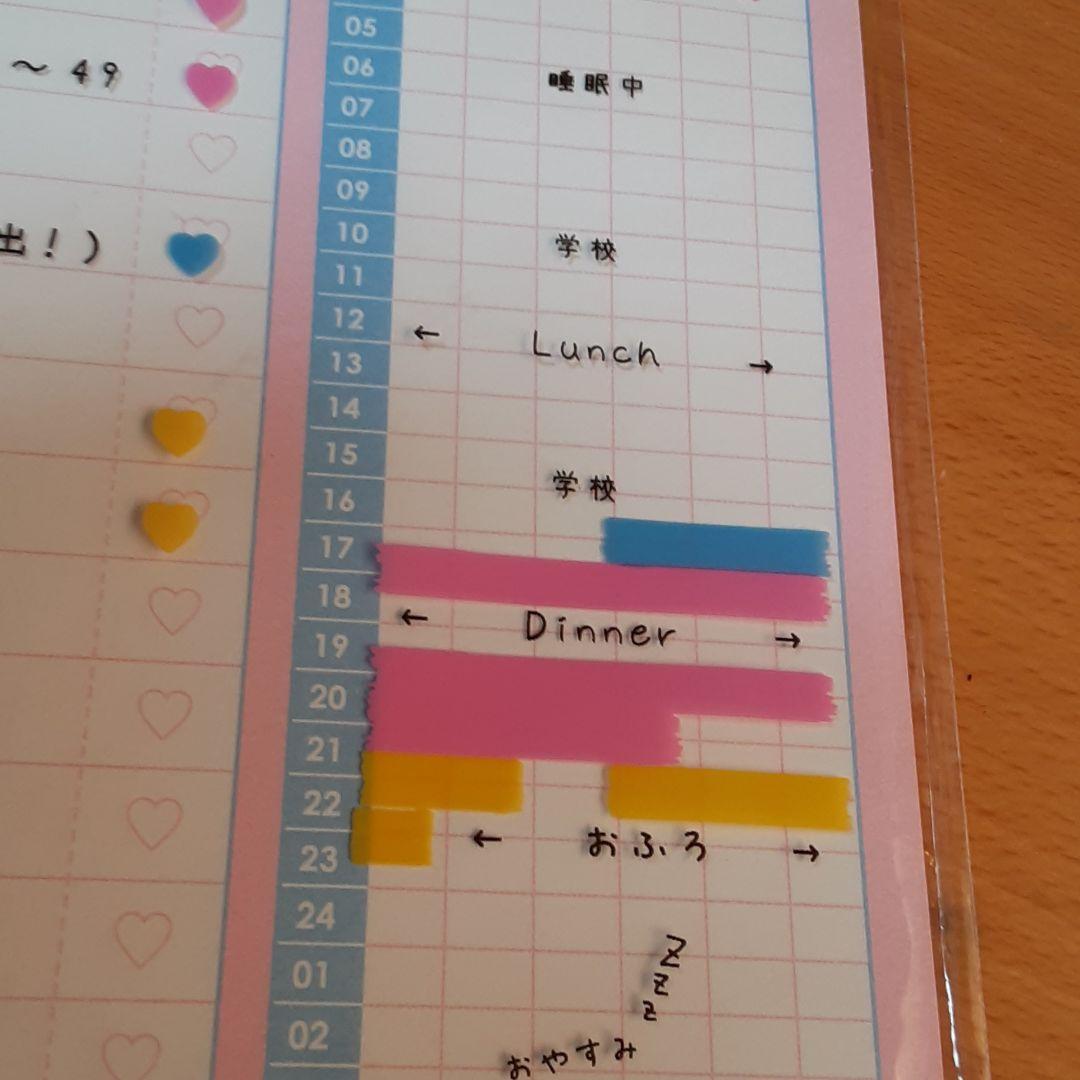 ～ 49
出！）
05
06
睡眠中
07
08
09
10
学校
11
12
← Lunch →
13
14
15
学校
16
17
18
← Dinner →
19
20
21
22
← おふろ →
23
24
z
01
z
z
02
おやすみ